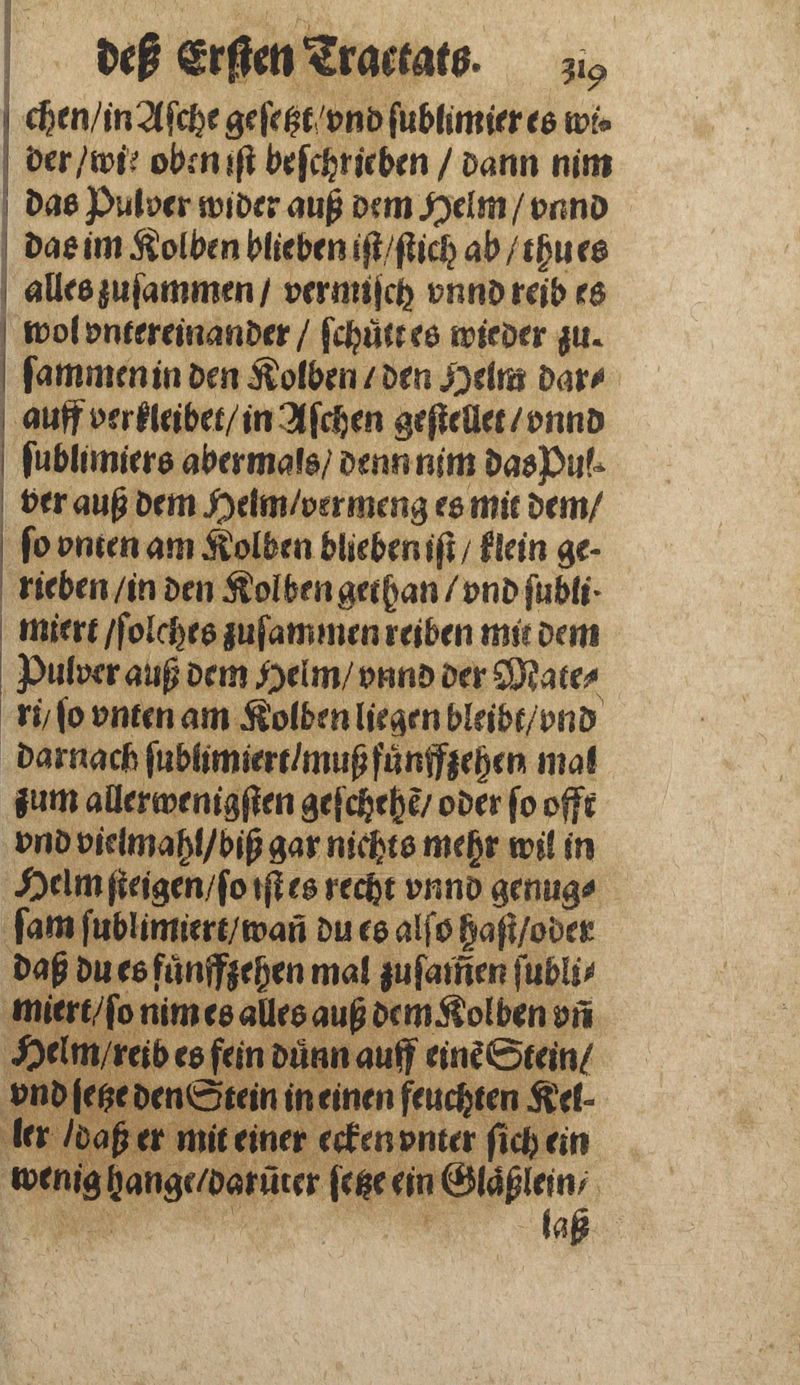 Deß Ersten Tractats. 319
chen/in Asche gesetzt/vnd sublimier es wi-
der/wie oben ist beschrieben / dann nim
das Pulver wider auß dem Helm/vnnd
das im Kolben blieben ist/stich ab/thu es
alles zusammen/ vermisch vnnd reib es
wol vntereinander/ schütt es wieder zu-
sammen in den Kolben/den Helm dar-
auff verkleibet/in Aschen gestellet/vnnd
sublimiers abermals/denn nim das Pul-
ver auß dem Helm/vermeng es mit dem/
so vnten am Kolben blieben ist/ klein ge-
rieben/in den Kolben gethan/vnd subli-
miert/solches zusammen reiben mit dem
Pulver auß dem Helm/vnnd der Mate-
ri/so vnten am Kolben liegen bleibt/vnd
darnach sublimiert/muß fünffzehen mal
zum allerwenigsten geschehẽ/oder so offt
vnd vielmahl/biß gar nichts mehr wil in
Helm steigen/so ist es recht vnnd genug-
sam sublimiert/wañ du es also hast/oder
daß du es fünffzehen mal zusam̃en subli-
miert/so nim es alles auß dem Kolben vñ
Helm/reib es fein dünn auff einẽ Stein/
vnd setze den Stein in einen feuchten Kel-
ler /daß er mit einer ecken vnter sich ein
wenig hange/darũter setze ein Gläßlein/
laß